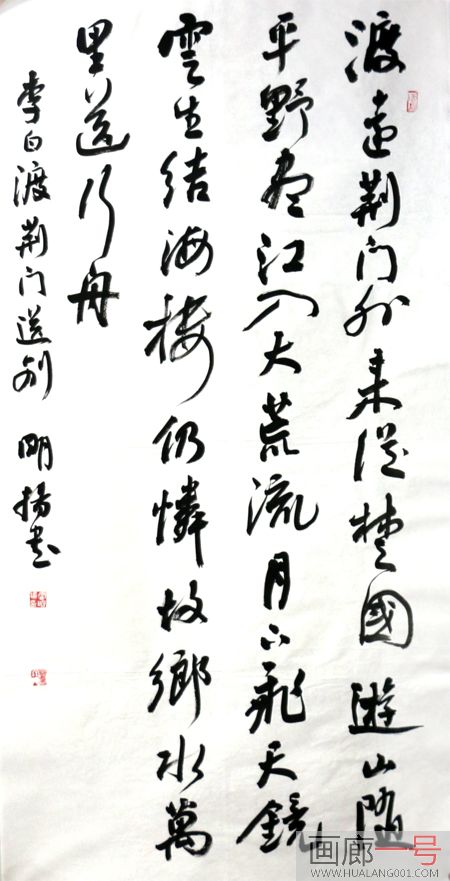 渡远荆门外来从楚國遊山随
平野尽江入大荒流月下飛天鏡
雲生结海楼仍憐故鄉水萬
里送行舟
李白渡荆门送别 明揚书
画廊一号
WWW.HUALANG001.COM